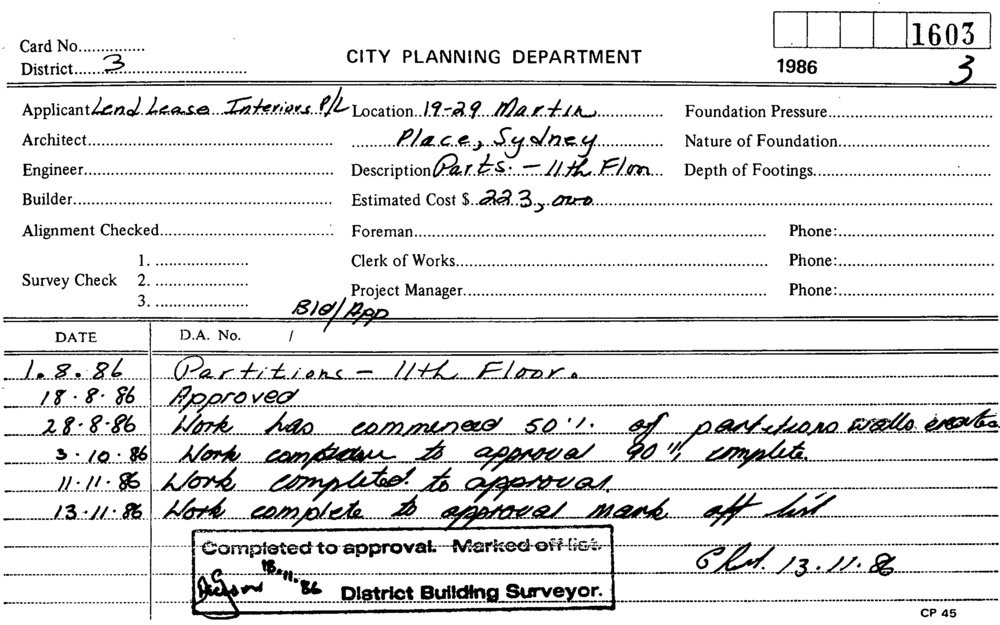 1603
Card No.
District 3
CITY PLANNING DEPARTMENT
1986
3
Applicant Lend Lease Interiors P/L Location 19-29 Martin Foundation Pressure
Architect Place, Sydney Nature of Foundation
Engineer Description Parts. - 11th Floor Depth of Footings
Builder Estimated Cost $ 223,000
Alignment Checked Foreman Phone:
1. Clerk of Works Phone:
Survey Check 2.
3. Project Manager Phone:
Bld/App
DATE D.A. No. /
1.8.86 Partitions - 11th Floor.
18.8.86 Approved
28.8.86 Work has commenced 50% of partitions walls
3.10.86 Work to approval 90% complete.
11.11.86 Work completed to approval.
13.11.86 Work complete to approval mark off list
Completed to approval. Marked off list.
13.11.86
11.86 District Building Surveyor.
CP 45